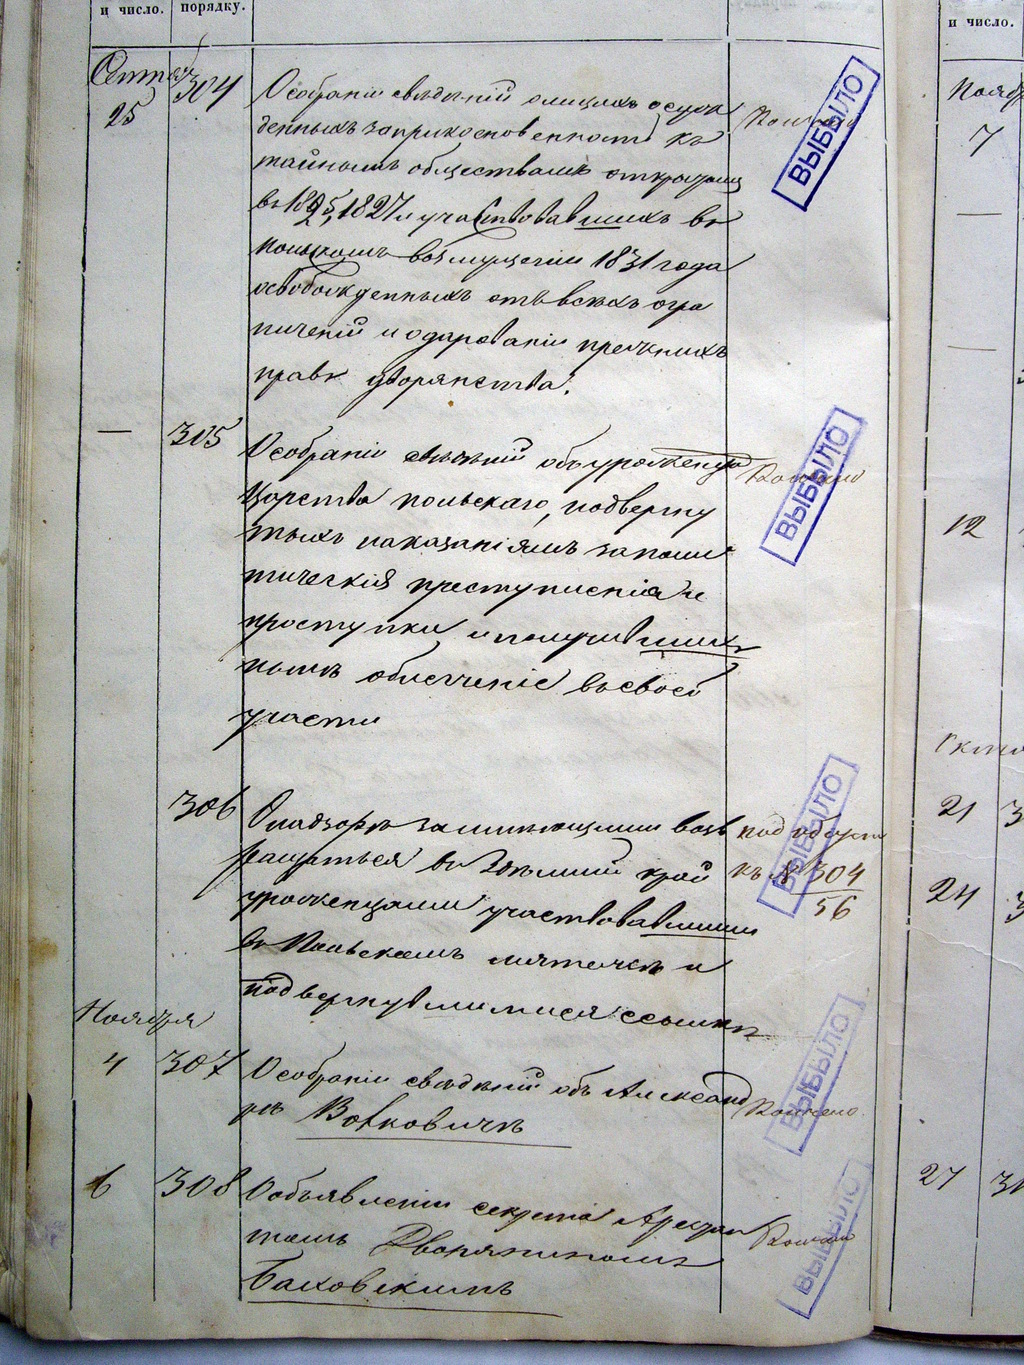 и число. порядку.
и число.
304
25
О собраніи свѣдѣній о лицахъ осуж
денныхъ за прикосновенность къ
тайнымъ обществамъ открытымъ
въ 1825, 1827 и участвовавшихъ въ
польскомъ возмущеніи 1831 года
освобожденныхъ отъ всѣхъ огра
ниченій и о дарованіи прежнихъ
правъ дворянства.
ВЫБЫЛО
305
О собраніи свѣдѣній объ уроженцахъ
Царства польскаго, подвергну
тыхъ наказаніямъ за поли
тическія преступленія и
проступки и получившихъ
нынѣ облегченіе въ своей
участи
ВЫБЫЛО
306
О надзорѣ за имѣющими воз
вращаться въ здѣшній край
уроженцами участвовавшими
въ Польскомъ мятежѣ и
подвергнувшимися ссылкѣ
къ № 304
56
ВЫБЫЛО
Ноября
4
307
О собраніи свѣдѣній объ Александ
рѣ Вовковичѣ
Кончено
ВЫБЫЛО
6
308
О объявленіи секрета Арестан
томъ Дворяниномъ
ВЫБЫЛО
Ноября
7
12
21
24
27